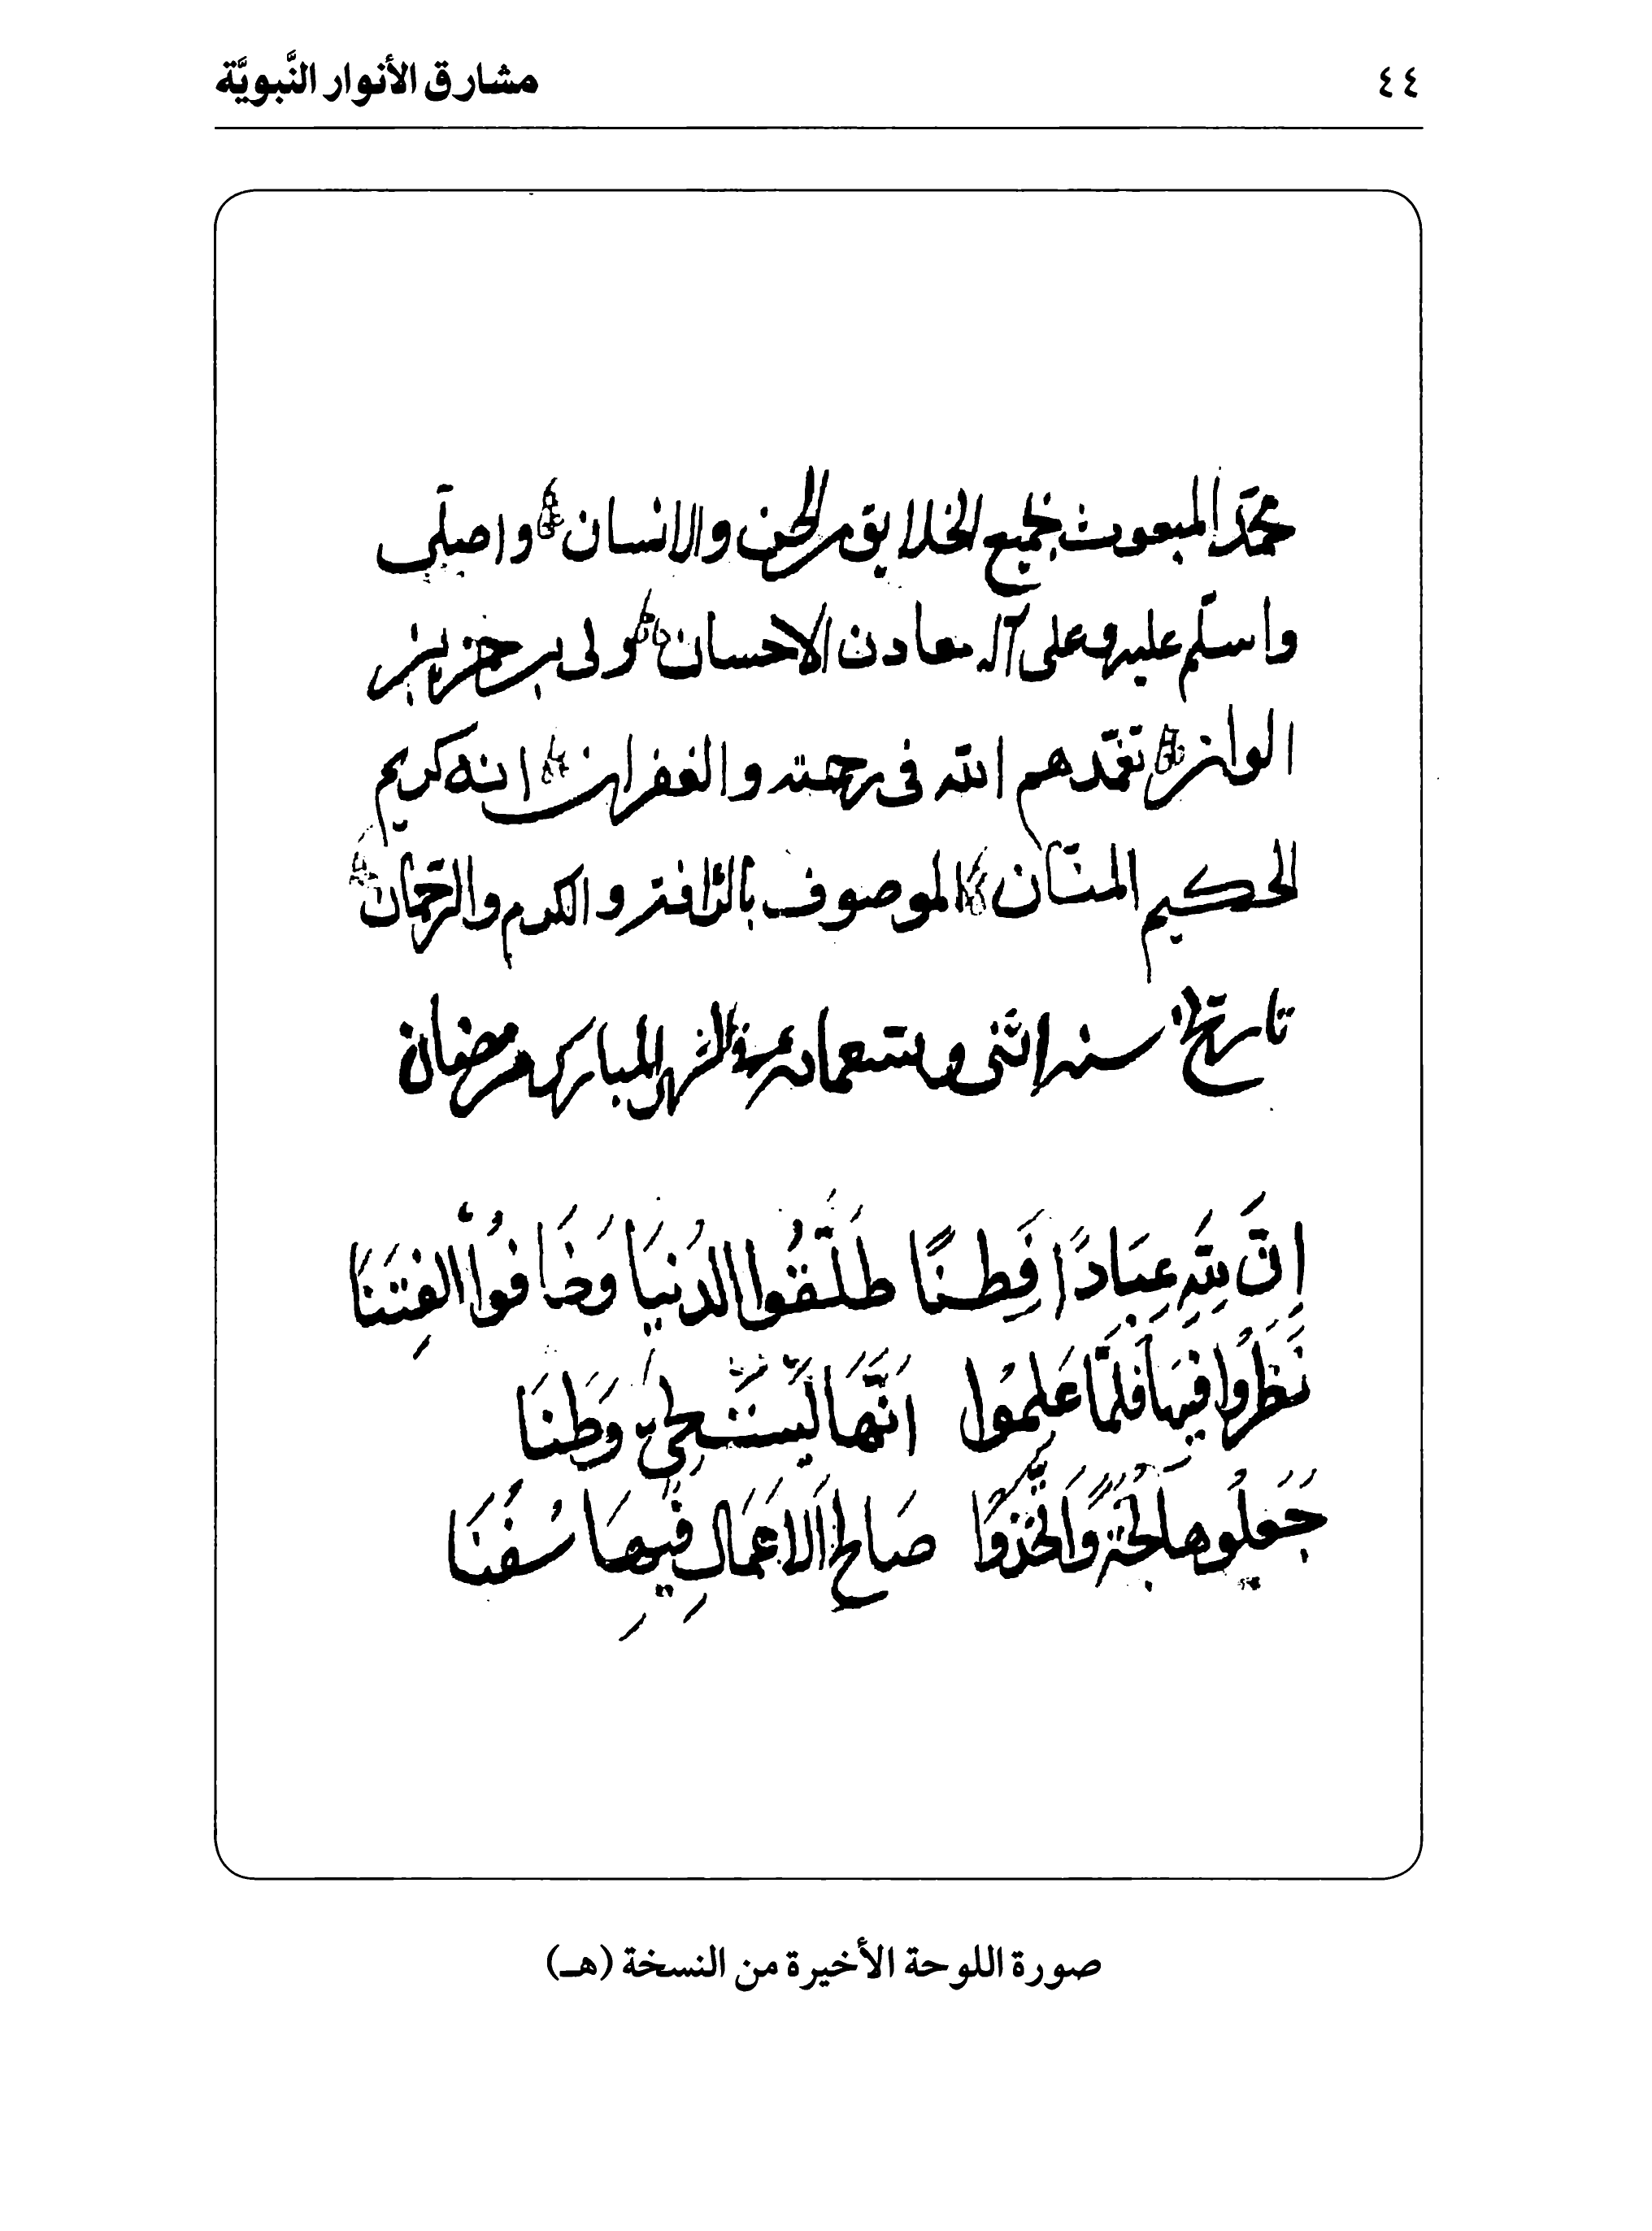 ٤٤
مشارق الأنوار النَّبويَّة
محمّد المبعوث بجميع الخلايق من الجن والانسان واصلّي
واسلّم عليه وعلى آله معادن الاحسان ولي بن حمزة بن
تغمّدهم الله في رحمته والغفران انه كريم
الحكيم المنّان الموصوف بالرّافة والكرم والرّحمان
تاريخ سنه اثنى وتسعمائه الشهر المبارك رمضان
اِنَّ لِلّٰهِ عِبَادًا فَطِنًا طَلَّقُوا الدُنيَا وَخَافُوا الفِتَنَا
نَظَرُوا فيهَا فَلَمّا عَلِمُوا اَنَّهَا لَيْسَتْ لِحَيٍّ وَطَنَا
جَعَلُوهَا لُجَّةً وَاتَّخَذُوا صَالِحَ الاَعمَالِ فِيهَا سُفُنَا
صورة اللوحة الأخيرة من النسخة (هـ)